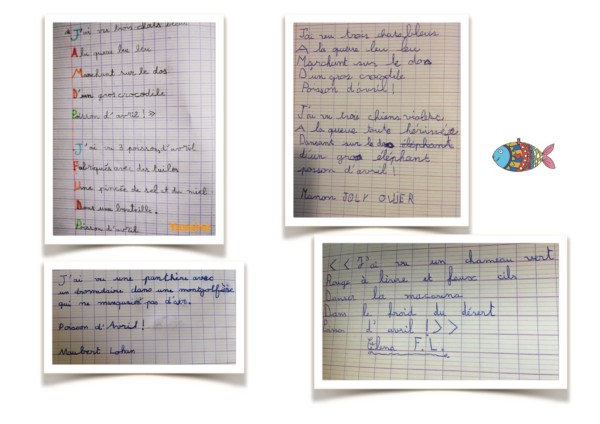 J'ai vu trois chats bleus
A la queue leu leu
Marchant sur le dos
D'un gros crocodile
Poisson d'avril !
J'ai vu 3 poissons d'avril
Fabriqués avec des tuiles
Une pincée de sel et du miel
Dans une bouteille.
Poisson d'avril
J'ai vu trois chats bleus
A la queue leu leu
Marchant sur le dos
D'un gros crocodile
Poisson d'avril !
J'ai vu trois chiens violets
A la queue toute hérissée
Dansent sur le dos
d'un gros éléphant
poisson d'avril !
Manon JOLY OLLIER
J'ai vu une panthère avec
un dromadaire dans une montgolfière
qui ne manquait pas d'air.
Poisson d'Avril !
Maubert Lohan
<< J'ai vu un chameau vert
Rouge à lèvre et faux cils
Danser la macarena
Dans le froid du désert
d'avril ! >>
Eléna F.L.